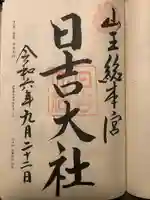 山王総本宮
日吉大社
令和六年九月二十二日